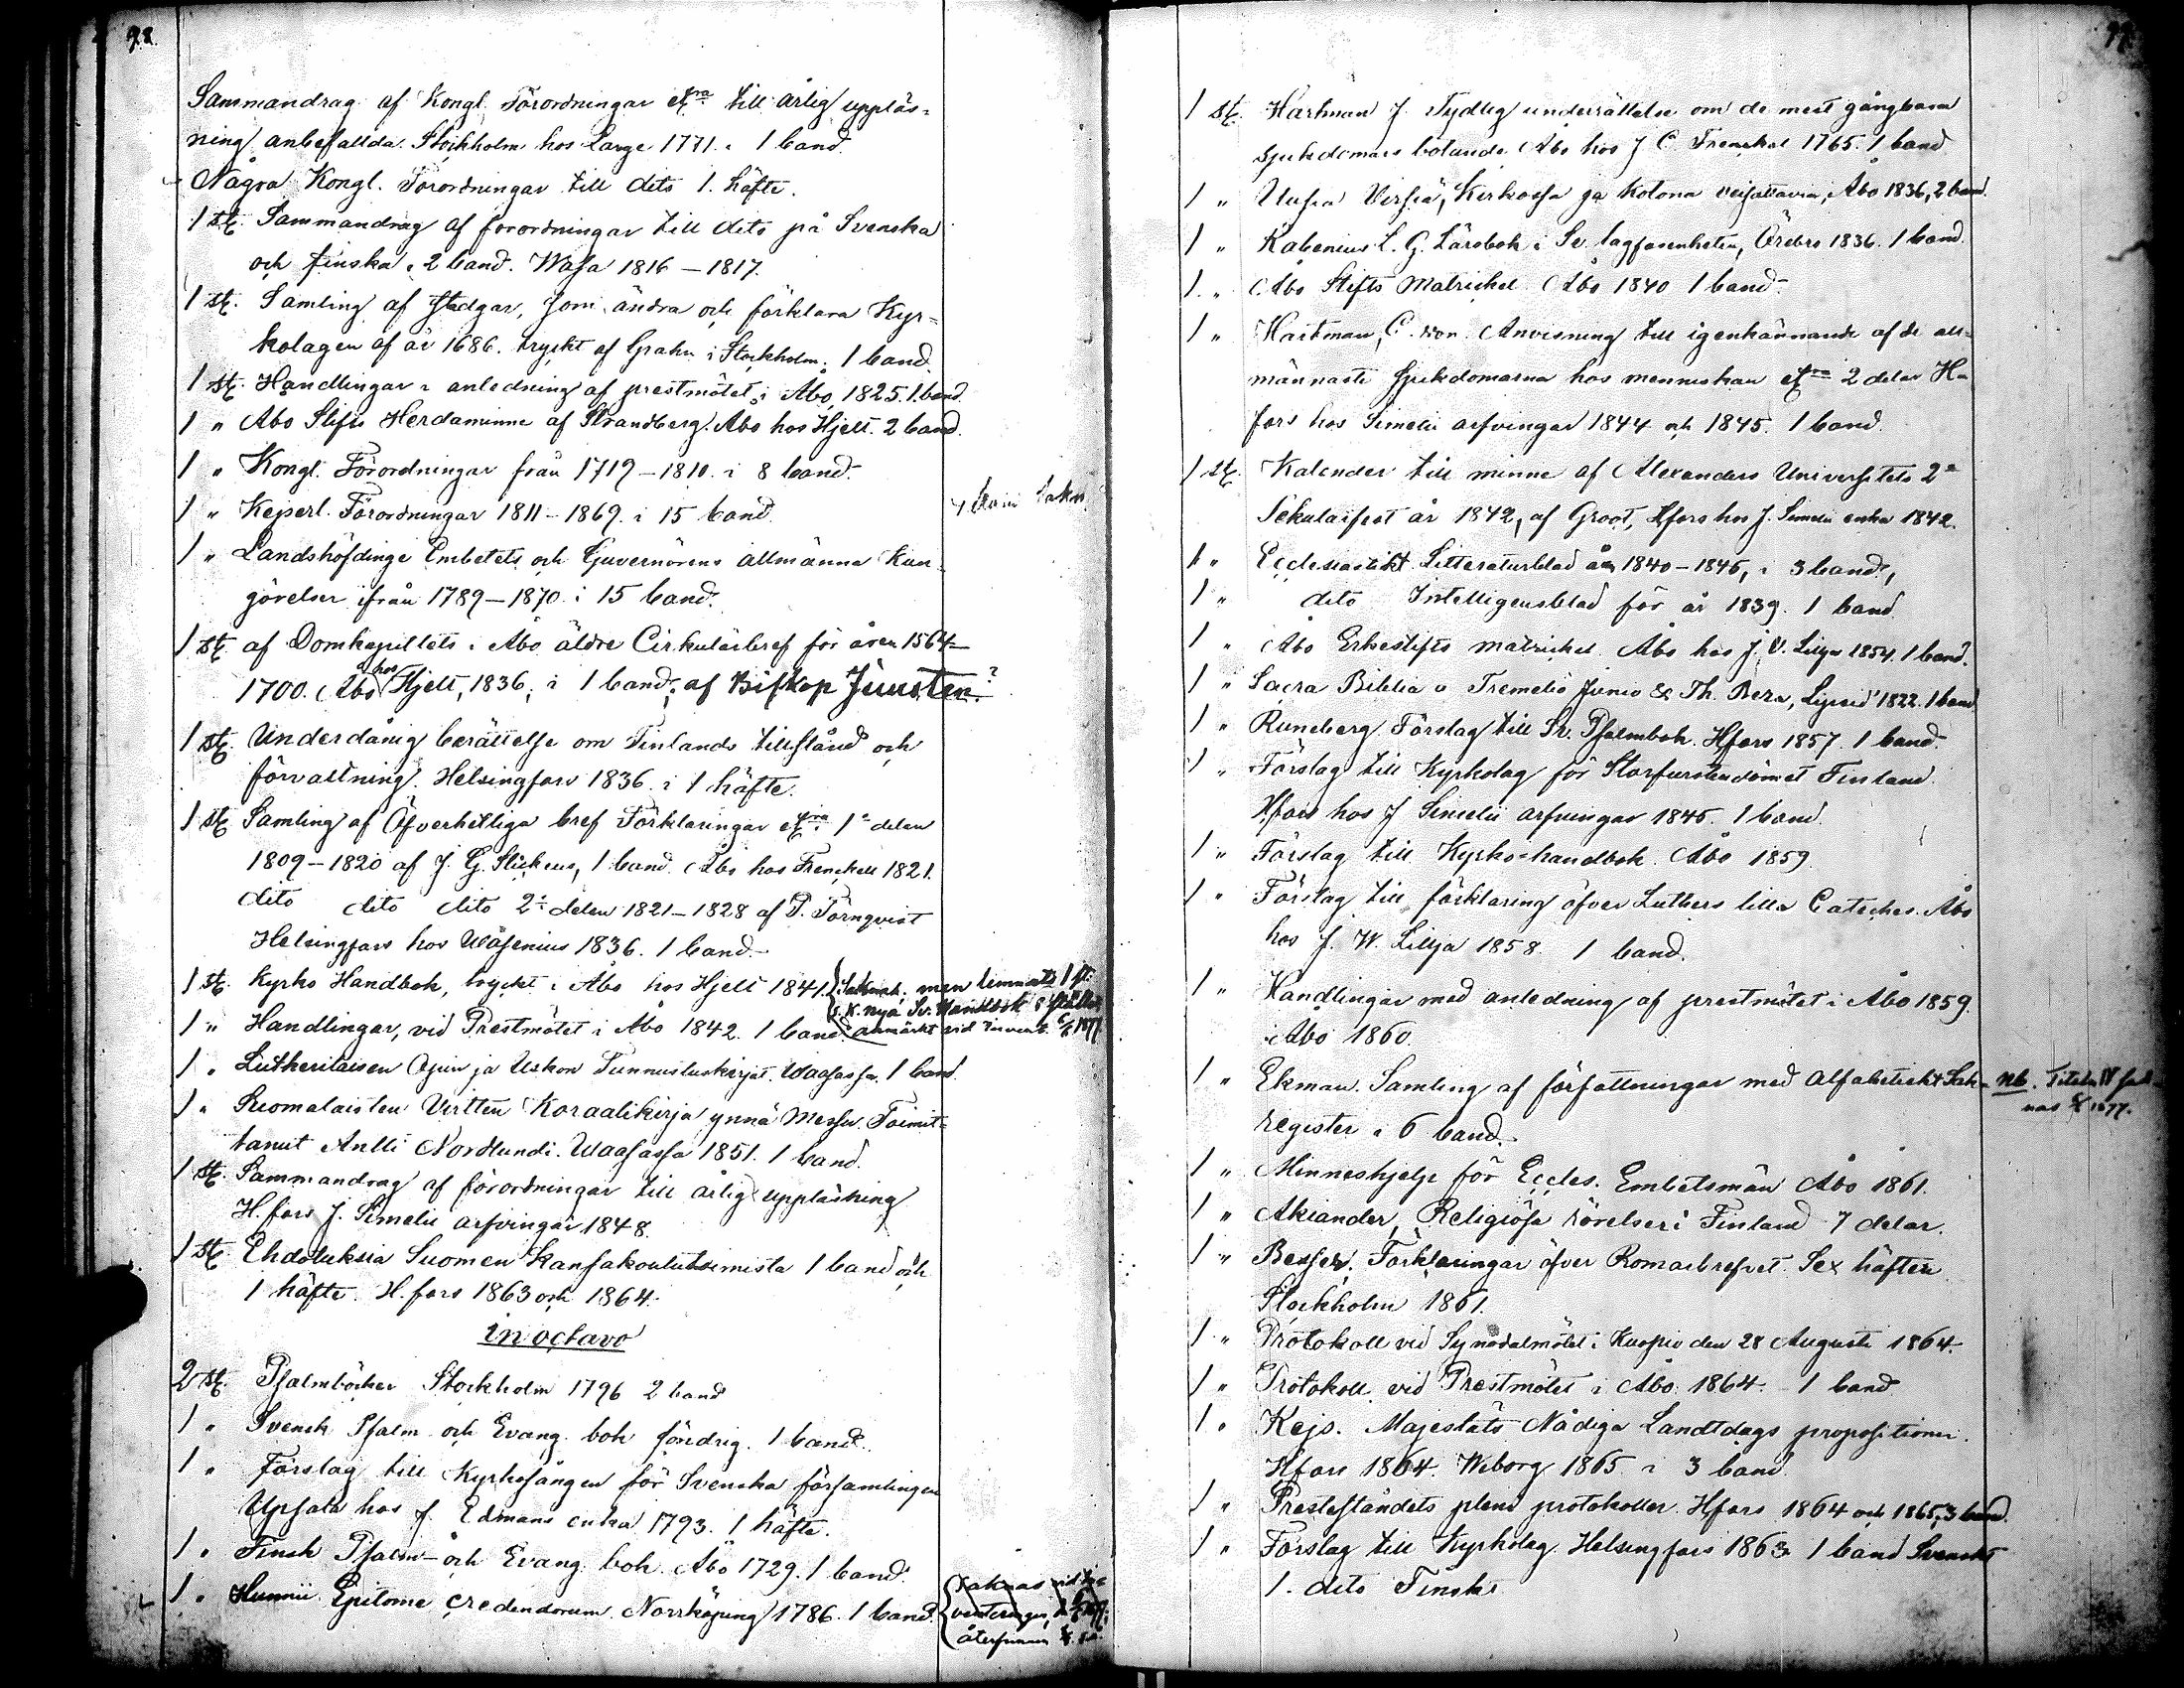 98.
Sammandrag af Kongl. Förordningar etcra till årlig uppläs-
ning anbefallda. Stockholm hos Lange 1771. 1 band.
Några Kongl. Förordningar till dito 1. häfte.
1 st. Sammandrag af förordningar till dito på Svenska
och finska. 2 band. Wasa 1816-1817.
1 st. Samling af stadgar, som ändra och förklara Kyr-
kolagen af år 1686. tryckt af Grahn i Stockholm. 1 band.
1 st. Handlingar i anledning af prestmötet i Åbo, 1825. 1. band.
1 " Åbo Stifts Herdaminne af Strandberg. Åbo hos Hjelt. 2 band.
1 " Kongl. Förordningar från 1719-1810. i 8 band.
1 " Kejserl. Förordningar 1811-1869. i 15 band.
1 " Landshöfdinge Embetets och Guvernörens allmänna Kun-
görelser ifrån 1789-1870. i 15 band.
1 st. af Domkapitlets i Åbo äldre Cirkulärbref för åren 1564-
1700. Åbo hos Hjelt, 1836, i 1 band; af Biskop Juusten?
1 st. Underdånig berättelse om Finlands tillstånd och
förvaltning. Helsingfors 1836. i 1 häfte.
1 st. Samling af Öfverhetliga bref Förklaringar etcra 1a delen
1809-1820 af J. G. 1 band. Åbo hos Frenckell 1821.
dito dito dito 2a delen 1821-1828 af P. Törnqvist
Helsingfors hos Wasenius 1836. 1 band.
1 st. Kyrko Handbok, tryckt i Åbo hos Hjelt 1841. Saknas, men lemnats 1 st.
s.k. nya Sv. Handbok i stället
1 " Handlingar, vid Prestmötet i Åbo 1842. 1 band. anmärkt vid Invent. 1877
1 " Lutherilaisen Opin ja Uskon Tunnustuskirjat. Waasassa. 1 band.
1 " Suomalaisten Virtten Koraalikirja ynnä Messu. Toimit-
tanut Antti Nordlundi. Waasassa 1851. 1 band.
1 st. Sammandrag af förordningar till årlig uppläsning
H.fors J. Simelii arfvingar 1848.
1 st. Ehdotuksia Suomen Kansakoulutoimista 1 band och
1 häfte. H.fors 1863 och 1864.
in octavo
2 st. Psalmböcker Stockholm 1796 2 band
1 " Svensk Psalm och Evang. bok 1 band.
1 " Förslag till Kyrkosången för Svenska församlingen
Upsala hos J. Edmans enka 1793. 1 häfte.
1 " Finsk Psalm- och Evang. bok. Åbo 1729. 1 band.
1 " Hunnii Epitome credendorum. Norrköping 1786. 1 band.
Saknas vid In-
venteringen
återfunnen
1 st. Hartman J. Tydlig underrättelse om de mest gångbara
sjukdomars botande Åbo hos J C Frenckel 1765. 1 band
1 " Uusia Virsiä, Kirkossa ja kotona veisattavia, Åbo 1836, 2 band.
1 " Rabenius L. G. Lärobok i Sv. lagfarenheten, Örebro 1836. 1 band.
1 " Åbo Stifts Matrickel. Åbo 1840 1 band.
1 " Hartman, C. von. Anvisning till igenkännande af de all-
männaste sjukdomarna hos menniskan etcra 2 delar H-
fors hos Simelii arfvingar 1844 och 1845. 1 band.
1 st. Kalender till minne af Alexanders Universitets 2a
Sekularfest år 1842, af Groot, Hfors hos J. Simelii enka 1842.
1 " Ecclesiastikt Litteraturblad 1840-1846, i 3 band,
1 " dito Intelligensblad för år 1839. 1 band
1 " Åbo Erkestifts matrickel. Åbo hos J. W. Lillja 1854. 1 band.
1 " Sacra Biblia a Tremelio Junio & Th. Beza, 1822. 1 band
1 " Runeberg Förslag till Sv. Psalmbok. Hfors 1857. 1 band.
1 " Förslag till Kyrkolag för Storfurstendömet Finland.
Hfors hos J Simelii arfvingar 1845. 1 band.
1 " Förslag till Kyrko-handbok. Åbo 1859.
1 " Förslag till förklaring öfver Luthers lilla Cateches. Åbo
hos J. W. Lillja 1858. 1 band.
1 " Handlingar med anledning af prestmötet i Åbo 1859.
Åbo 1860.
1 " Ekman. Samling af författningar med alfabetiskt Sak- nb.
register i 6 band.
1 " Minneshjelp för Eccles. Embetsmän Åbo 1861.
1 " Akiander, Religiösa rörelser i Finland 7 delar.
1 " Besser. Förklaringar öfver Romarbrefvet. Sex häften
Stockholm 1861.
1 " Protokoll vid Synodalmötet i Kuopio den 28 Augusti 1864.
1 " Protokoll vid Prestmötet i Åbo 1864. 1 band
1 " Kejs. Majestäts Nådiga Landtdags propositioner.
Hfors 1864. Wiborg 1865. i 3 band.
1 " Presteståndets pleni protokoller. Hfors 1864 och 1865, 3 band.
1 " Förslag till Kyrkolag. Helsingfors 1863. 1 band Svenskt
1. dito Finskt